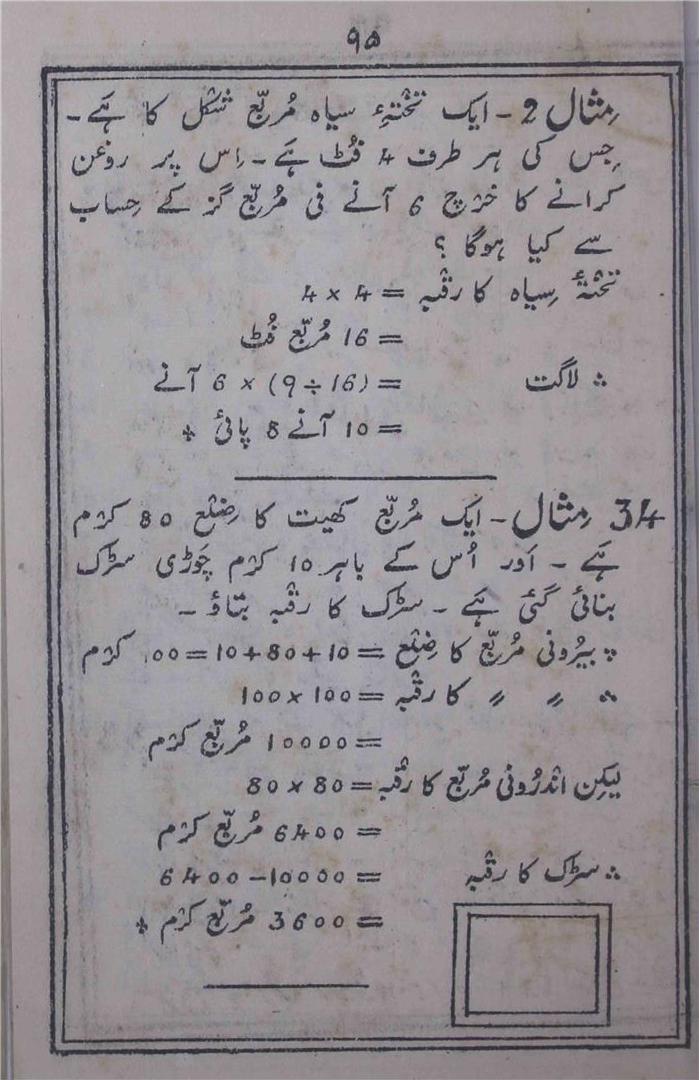 ۹۵
مِثال 2 - ایک تختۂِ سیاہ مُربّع شکل کا ہَے -
جِس کی ہر طرف 4 فُٹ ہَے - اِس پر روغن
کرانے کا خرْچ 6 آنے فی مُربّع گز کے حِساب
سے کیا ہوگا ؟
تختۂ سِیاہ کا رقبہ = 4 × 4
= 16 مُربّع فُٹ
∴ لاگت = (16 ÷ 9) × 6 آنے
= 10 آنے 8 پائی +
34 مِثال - ایک مُربّع کھیت کا ضِلْع 80 کرْم
ہَے - اَور اُس کے باہر 10 کرْم چَوڑی سڑک
بنائی گئی ہَے - سڑک کا رقْبہ بتاؤ -
∵ بیرُونی مُربّع کا ضِلْع = 10 + 80 + 10 = 100 کرْم
∴ 〃 〃 کا رقْبہ = 100 × 100
= 10000 مُربّع کرْم
لیکِن انْدرُونی مُربّع کا رقْبہ = 80 × 80
= 6400 مُربّع کرْم
∴ سڑک کا رقْبہ = 10000 – 6400
= 3600 مُربّع کرْم +